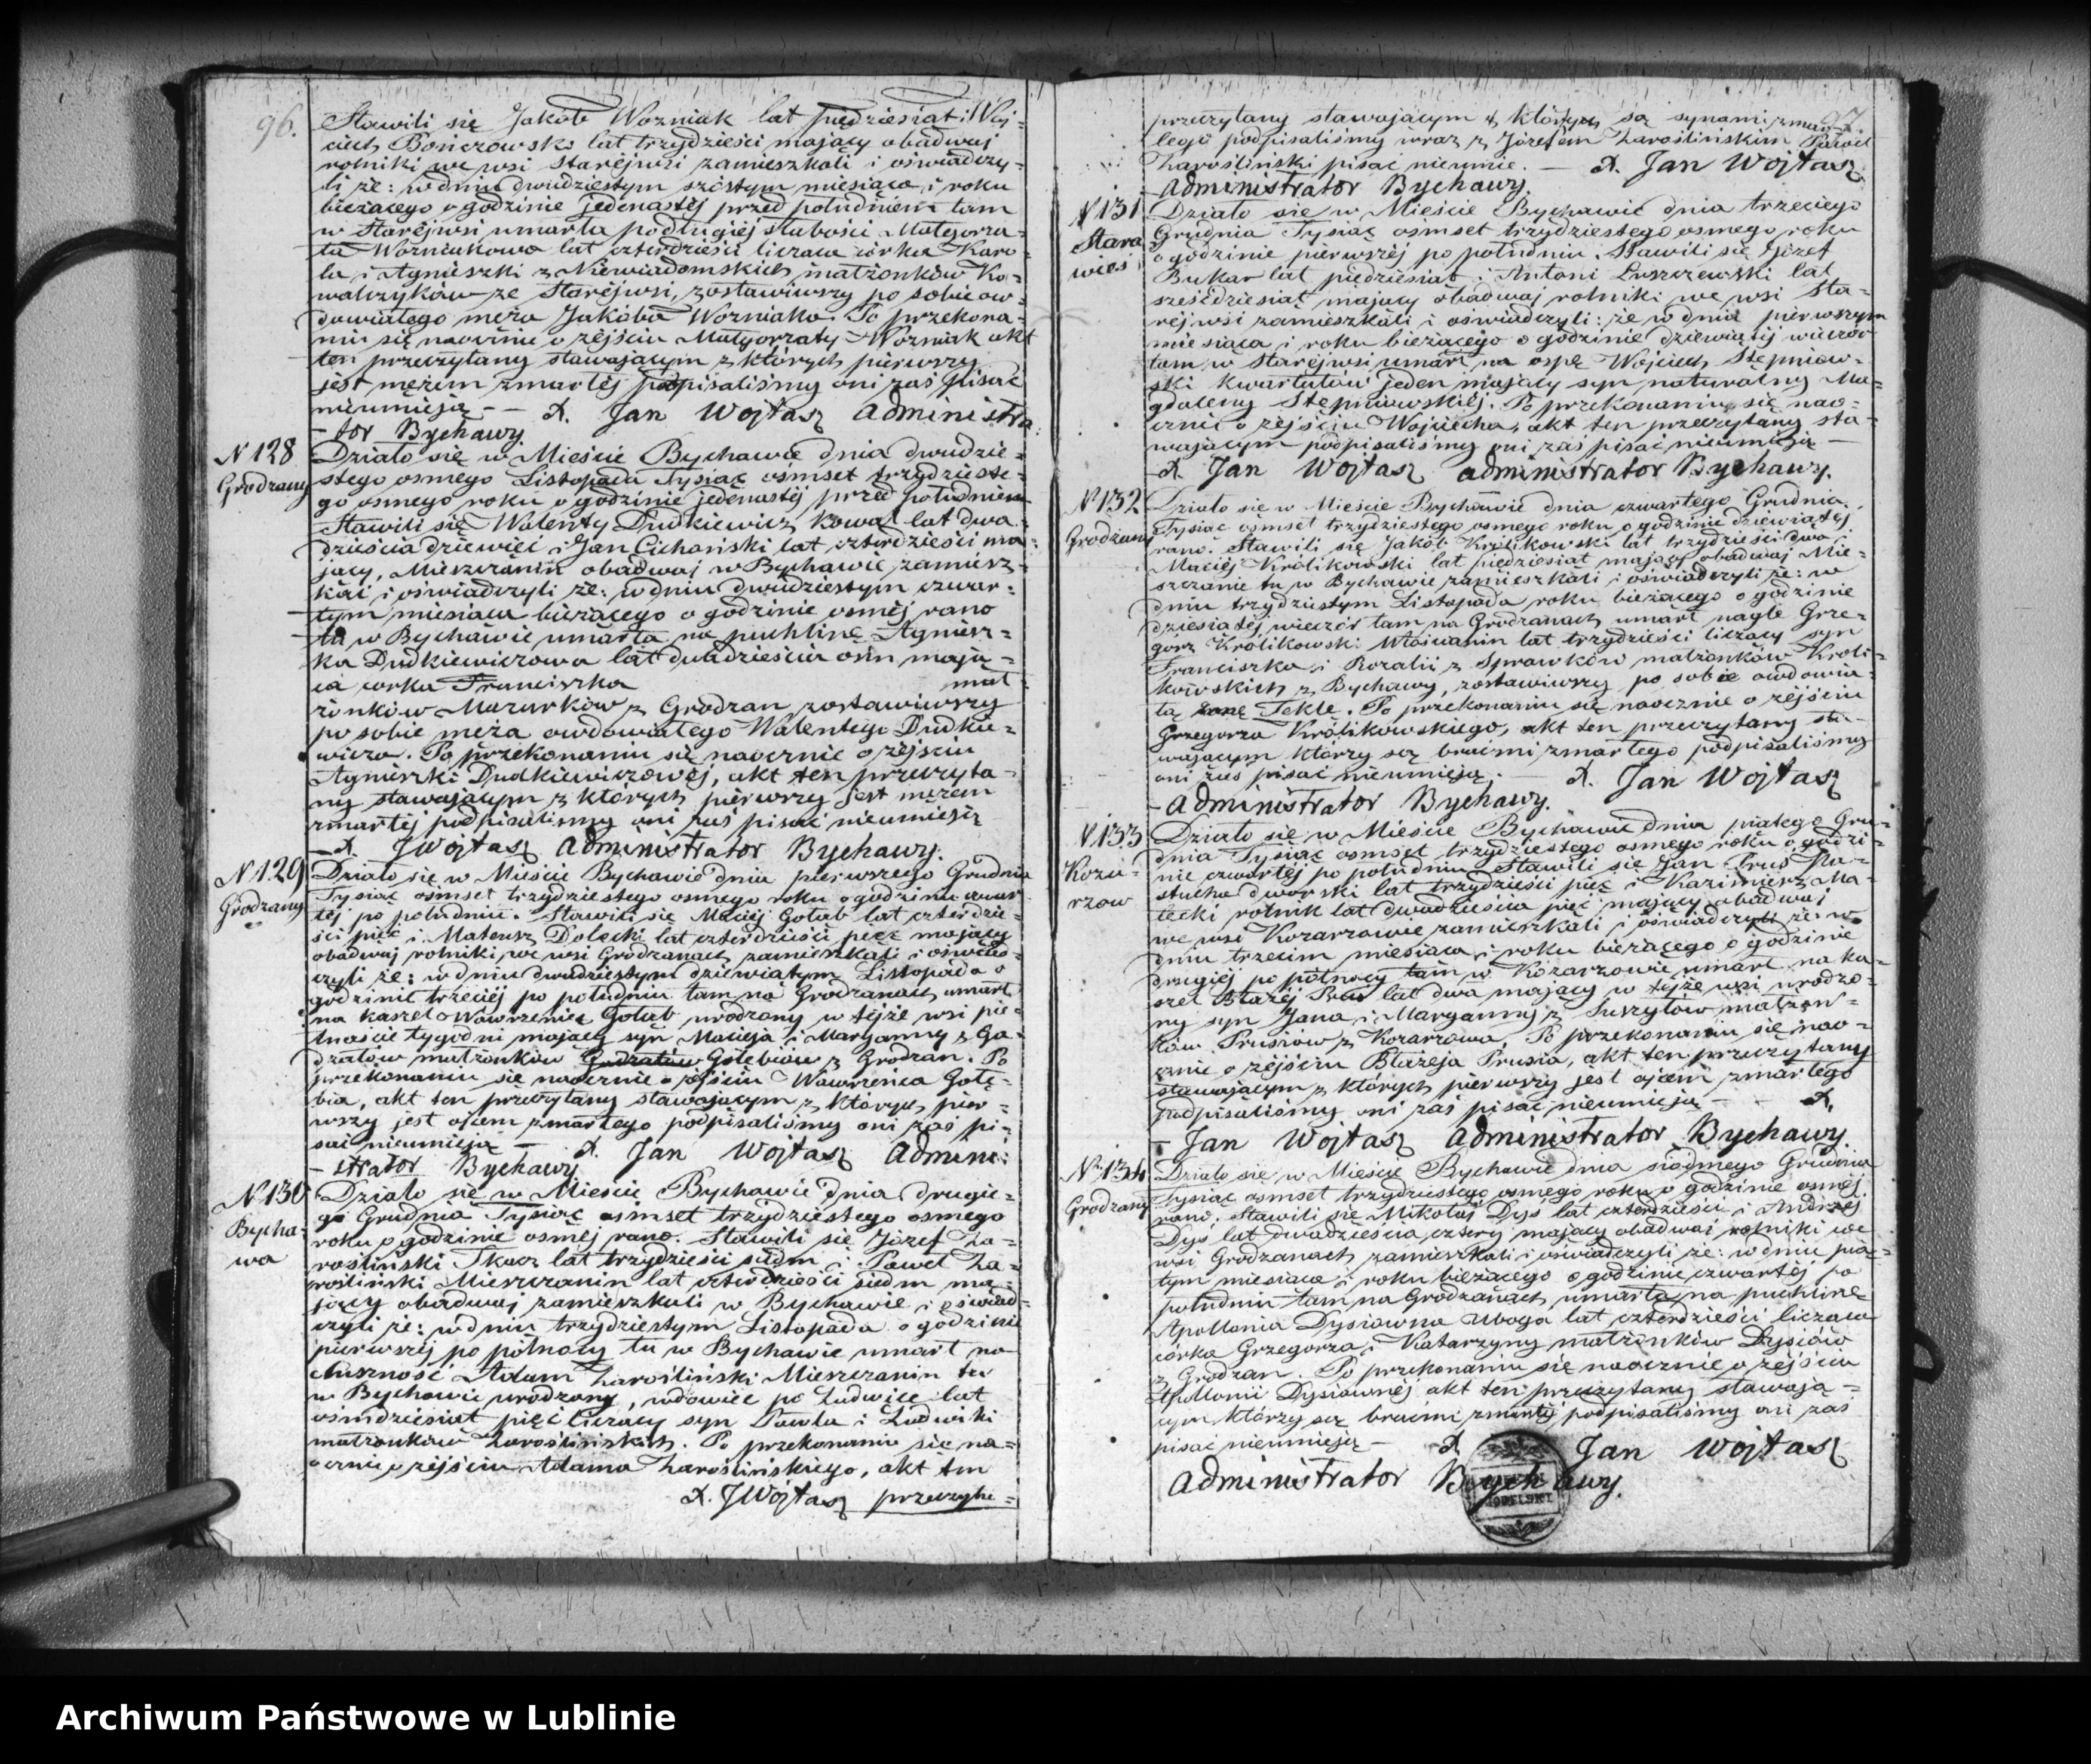 96.
Stawili się Jakób Wozniak lat pięćdziesiąt i Woj-
ciech Bończowski lat trzydzieści mający obadwaj
rolniki we wsi Starejwsi zamieszkali i oświadczy-
li że: w dniu dwudziestym szóstym miesiąca i roku
bieżącego o godzinie jedenastéj przed południem tam
w Starejwsi umarła po długiéj słabości Małgorza-
ta Wozniakowa lat czterdzieści licząca córka Karo-
la i Agnieszki z Niewiadomskich małżonków Ko-
walczyków ze Starejwsi, zostawiwszy po sobie ow-
dowiałego męża Jakóba Wozniaka. Po przekona-
niu się naocznie o zejściu Małgorzaty Wozniak akt
ten przeczytany stawającym z których pierwszy
jest mężem zmarłéj podpisaliśmy oni zaś pisać
nieumieją - X. Jan Wojtasz Administra
- tor Bychawy.
N 128
Grodzany
Działo się w Mieście Bychawie dnia dwudzie-
stego osmego Listopada Tysiąc ośmset trzydzieste-
go osmego roku o godzinie jedenastéj przed południem
Stawili się Walenty Dudkiewicz Kowal lat dwa-
dzieścia dziewięć i Jan Cichański lat czterdzieści ma-
jący, Mieszczanin obadwaj w Bychawie zamiesz-
kali i oświadczyli że: w dniu dwudziestym czwar-
tym miesiąca bieżącego o godzinie osméj rano
tu w Bychawie umarła na puchlinę Agniesz-
ka Dudkiewiczowa lat dwadzieścia osm mają-
ca córka Franciszka mał-
żonków Mazurków z Grodzan zostawiwszy
po sobie męża owdowiałego Walentego Dudkie-
wicza. Po przekonaniu się naocznie o zejściu
Agnieszki Dudkiewiczowéj, akt ten przeczyta-
ny stawającym z których pierwszy jest mężem
zmarłéj podpisaliśmy oni zaś pisać nieumieją
X. JWojtasz Administrator Bychawy.
N 129
Grodzany
Działo się w Mieście Bychawie dnia pierwszego Grudnia
Tysiąc ośmset trzydziestego osmego roku o godzinie czwar-
téj po południu. Stawili się Maciej Gołub lat czterdzie-
ści pięć i Mateusz Dolecki lat czterdzieści pięć mający
obadwaj rolniki we wsi Grodzanach zamieszkali i oświad-
czyli że: w dniu dwudziestym dziewiątym Listopada o
godzinie trzeciéj po południu tam na Grodzanach umarł
na kaszel Wawrzeniec Gołub urodzony w tejże wsi pię-
tnaście tygodni mający syn Macieja i Maryanny z Ga-
dzałów małżonków Gołębiów z Grodzan. Po
przekonaniu się naocznie o zejściu Wawrzeńca Gołę-
bia, akt ten przeczytany stawającym z których pier-
wszy jest ojcem zmarłego podpisaliśmy oni zaś pi-
sać nieumieją - X. Jan Wojtasz Admini-
- strator Bychawy
N 130
Bycha-
wa
Działo się w Mieście Bychawie dnia drugie-
go Grudnia Tysiąc ośmset trzydziestego osmego
roku o godzinie osméj rano. Stawili się Józef Za-
rośliński Tkacz lat trzydzieści siedm i Paweł Za-
rośliński Mieszczanin lat czterdzieści siedm ma-
jący obadwaj zamieszkali w Bychawie i oświad-
czyli że: w dniu trzydziestym Listopada o godzinie
pierwszéj po północy tu w Bychawie umarł na
duszność Adam Zarośliński Mieszczanin tu
w Bychawie urodzony, wdowiec po Ludwice lat
ośmdziesiąt pięć liczący syn Pawła i Ludwiki
małżonków Zaroślińskich. Po przekonaniu się na-
ocznie o zejściu Adama Zaroślińskiego, akt ten
X. JWojtasz przeczyta-
97.
przeczytany stawającym z których są synami zmar-
łego podpisaliśmy wraz z Józefem Zaroślińskim Paweł
Zarośliński pisać nieumie. - X. Jan Wojtasz
Administrator Bychawy.
N 131
Stara
wieś
Działo się w Mieście Bychawie dnia trzeciego
Grudnia Tysiąc osmset trzydziestego osmego roku
o godzinie pierwszéj po południu. Stawili się Józef
Bukar lat pięćdziesiąt i Antoni Luszczewski lat
sześćdziesiąt mający obadwaj rolniki we wsi Sta-
rejwsi zamieszkali i oświadczyli: że w dniu pierwszym
miesiąca i roku bieżącego o godzinie dziewiątéj wieczór
tam w Starejwsi umarł na ospę Wojciech Stępniow-
ski kwartałów jeden mający syn naturalny Ma-
gdaleny Stępniowskiéj. Po przekonaniu się nao-
cznie o zejściu Wojciecha, akt ten przeczytany sta-
wającym podpisaliśmy oni zaś pisać nieumieją -
X. Jan Wojtasz Administrator Bychawy.
N 132
Grodzany
Działo się w Mieście Bychawie dnia czwartego Grudnia
Tysiąc ośmset trzydziestego osmego roku o godzinie dziewiątéj
rano. Stawili się Jakób Królikowski lat trzydzieści dwa i
Maciej Królikowski lat pięćdziesiąt mający obadwaj Mie-
szczanie tu w Bychawie zamieszkali i oświadczyli że: w
dniu trzydziestym Listopada roku bieżącego o godzinie
dziesiątéj wieczór tam na Grodzanach umarł nagle Grze-
górz Królikowski Włościanin lat trzydzieści liczący syn
Franciszka i Rozalii z Sprawków małżonków Króli-
kowskich z Bychawy, zostawiwszy po sobie owdowia-
łą żonę Teklę. Po przekonaniu się naocznie o zejściu
Grzegorza Królikowskiego, akt ten przeczytany sta-
wającym którzy są braćmi zmarłego podpisaliśmy
oni zaś pisać nieumieją. - X. Jan Wojtasz
- Administrator Bychawy.
N 133
Koza-
rzow
Działo się w Mieście Bychawie dnia piątego Gru-
dnia Tysiąc osmset trzydziestego osmego roku o godzi-
nie czwartéj po południu Stawili się Jan Prus Pa-
stucha dworski lat trzydzieści pięć i Kazimierz Ma-
łecki rolnik lat dwadzieścia pięć mający obadwaj
we wsi Kozarzowie zamieszkali i oświadczyli że: w
dniu trzecim miesiąca i roku bieżącego o godzinie
drugiéj po północy tam w Kozarzowie umarł na ka-
szel Błażej Prus lat dwa mający w tejże wsi urodzo-
ny syn Jana i Maryanny z Suszyłów małżon-
ków Prusiów z Kozarzowa. Po przekonaniu się nao-
cznie o zejściu Błażeja Prusia, akt ten przeczytany
stawającym z których pierwszy jest ojcem zmarłego
podpisaliśmy oni zaś pisać nieumieją - - X.
- Jan Wojtasz Administrator Bychawy.
N 134
Grodzany
Działo się w Mieście Bychawie dnia siódmego Grudnia
Tysiąc osmset trzydziestego osmego roku o godzinie osméj
rano. Stawili się Mikołaj Dyś lat czterdzieści i Andrzej
Dyś lat dwadzieścia cztery mający obadwaj rolniki we
wsi Grodzanach zamieszkali i oświadczyli że: w dniu pią-
tym miesiąca i roku bieżącego o godzinie czwartéj po
południu tam na Grodzanach umarła na puchlinę
Apollonia Dysiowna uboga lat czterdzieści licząca
córka Grzegorza i Katarzyny małżonków Dysiów
z Grodzan. Po przekonaniu się naocznie o zejściu
Apollonii Dysiownéj akt ten przeczytany stawają-
cym którzy są braćmi zmarłéj podpisaliśmy oni zaś
pisać nieumieją - X Jan Wojtasz
Administrator Bychawy.
Archiwum Państwowe w Lublinie